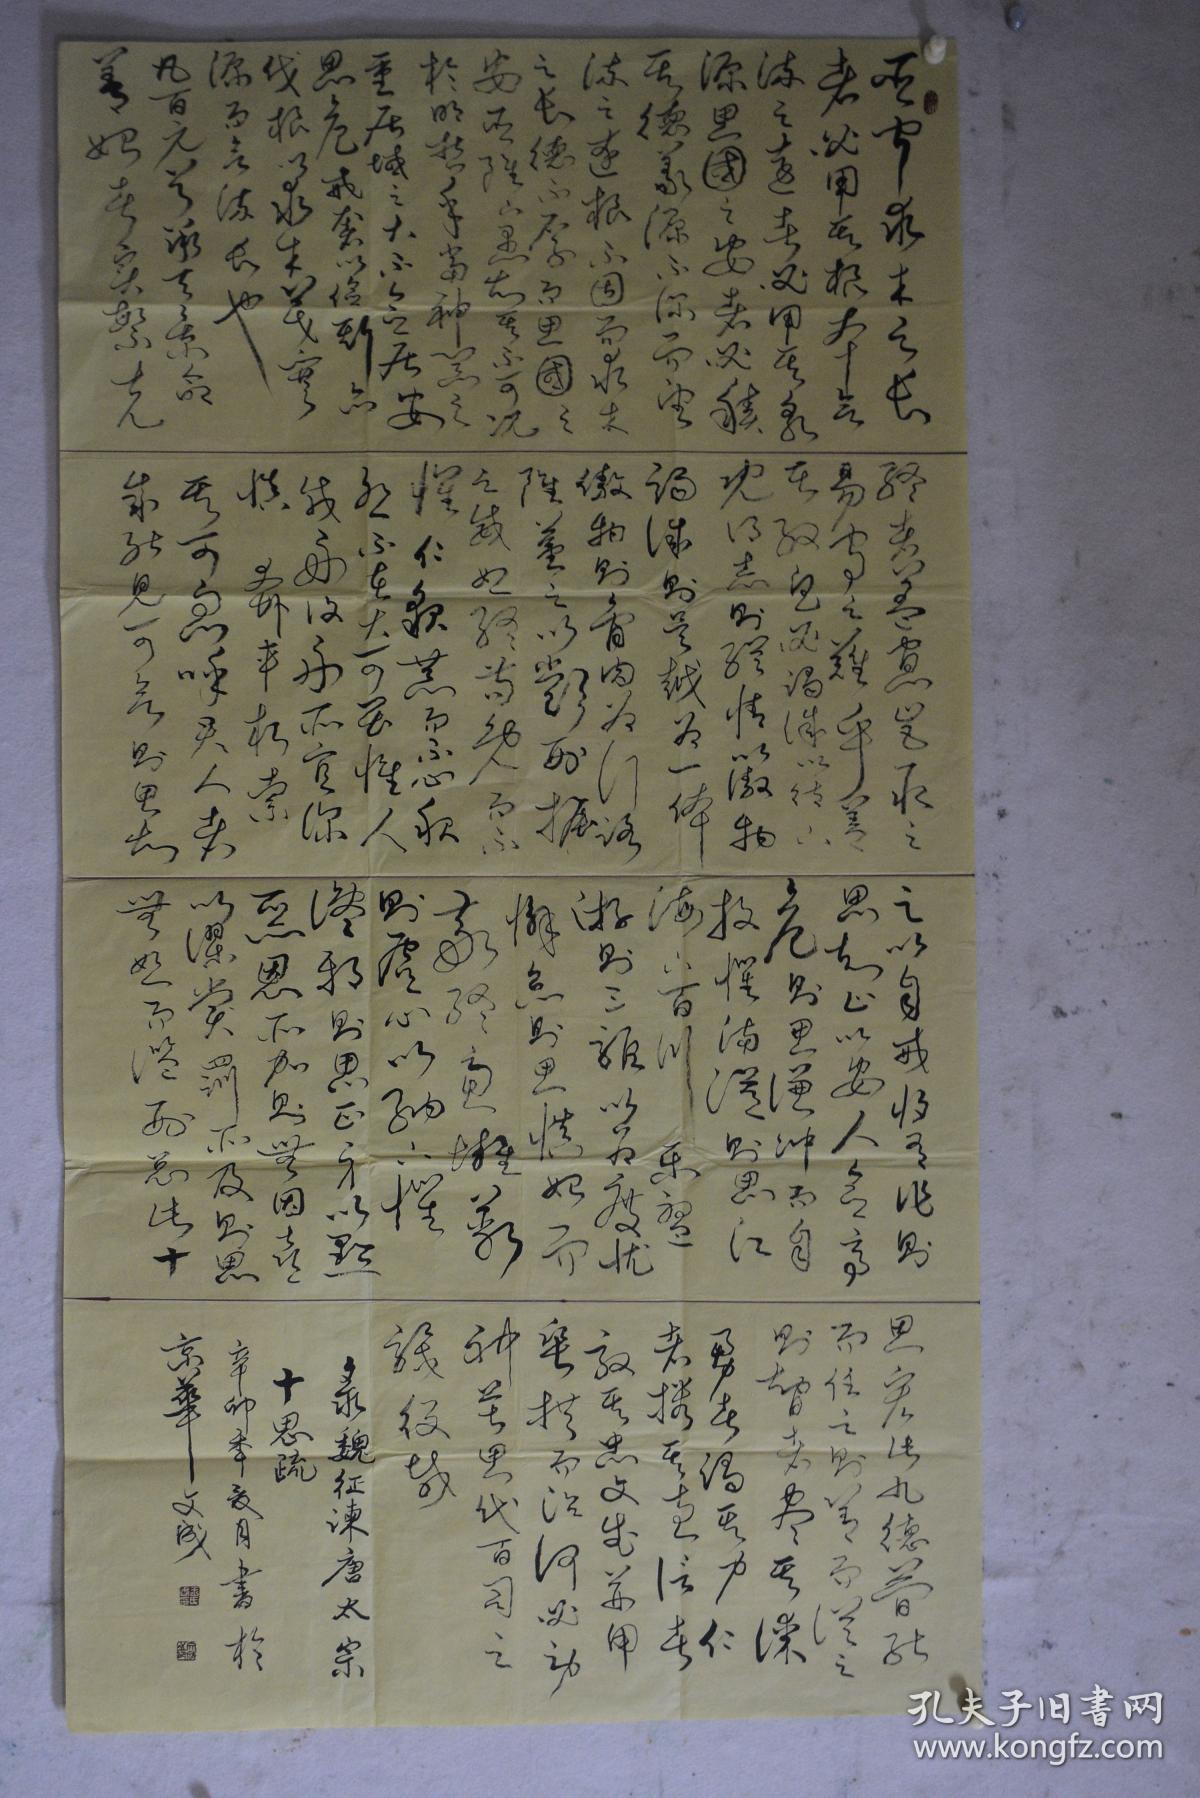 臣闻求木之長
者必固其根本欲
流之遠者必浚其泉
源思國之安者必積
其德義源不深而望
流之遠根不固而求木
之長德不厚而思國之
安臣雖下愚知其不可況
於明哲乎當神器之
重居域之大不念居安
思危戒奢以儉斯亦
伐根以求木茂塞
源而欲流長也
凡百元首承天景命
善始者實繁克
終者蓋寡豈取之
易守之難乎蓋
在殷憂必竭誠以待下
既得志則縱情以傲物
竭誠則吳越為一體
傲物則骨肉為行路
雖董之以嚴刑振
之威怒終苟免而不
懷仁貌恭而不心服
怨不在大可畏惟人
載舟覆舟所宜深
慎奔車朽索
其可忽乎君人者
誠能見可欲則思知
之以自戒將有作則
思知止以安人念高
危則思謙沖而自
牧懼滿溢則思江
海下百川樂盤
游則三驅以為度憂
懈怠則思慎始而
敬終慮壅蔽
則虛心以納下懼
讒邪則思正身以黜
惡恩所加則無因喜
以謬賞罰所及則思
無怒而濫刑總此十
思宏此九德簡能
而任之則善而從之
則智者盡其謀
勇者竭其力仁
者播其惠信者
效其忠文武并用
垂拱而治何必勞
神苦思代百司之
職役哉
录魏征谏唐太宗
十思疏
辛卯年夏月書於
京華文成
孔夫子旧书网
www.kongfz.com